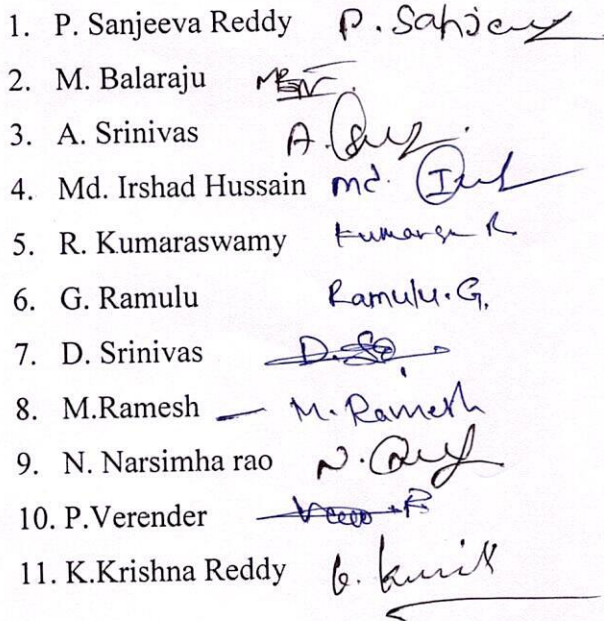 1. P. Sanjeeva Reddy P. Sanjeev
2. M. Balaraju
3. A. Srinivas A.
4. Md. Irshad Hussain md.
5. R. Kumaraswamy
6. G. Ramulu Ramulu.G.
7. D. Srinivas
8. M.Ramesh M. Ramesh
9. N. Narsimha rao N.
10. P.Verender
11. K.Krishna Reddy